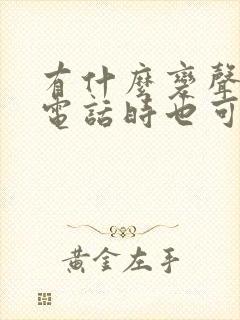 有什麼變聲
電話時也可
黃金左手